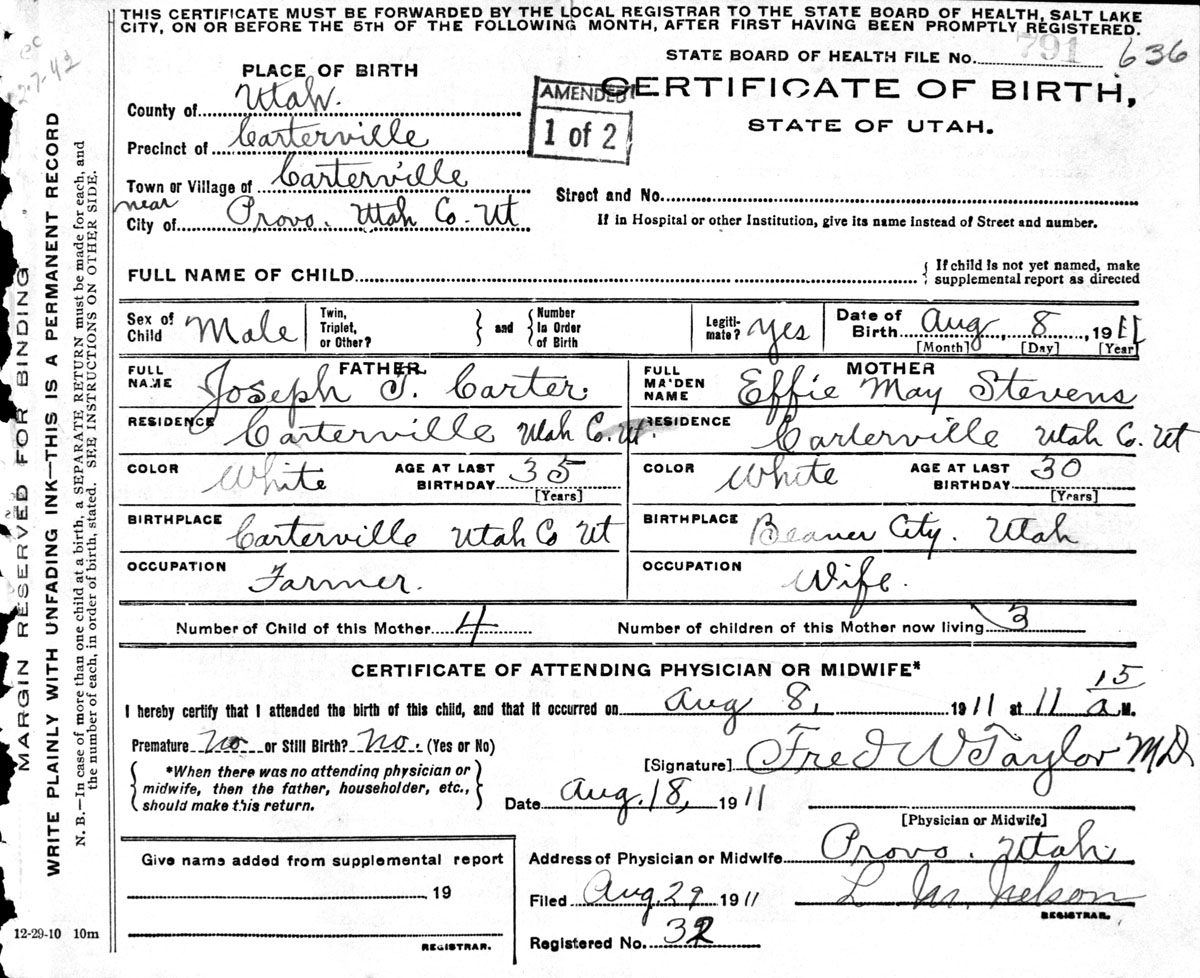 THIS CERTIFICATE MUST BE FORWARDED BY THE LOCAL REGISTRAR TO THE STATE BOARD OF HEALTH, SALT LAKE
CITY, ON OR BEFORE THE 5TH OF THE FOLLOWING MONTH, AFTER FIRST HAVING BEEN PROMPTLY REGISTERED.
STATE BOARD OF HEALTH FILE No. 791 636
PLACE OF BIRTH
AMENDED
1 of 2
CERTIFICATE OF BIRTH,
STATE OF UTAH.
County of Utah.
Precinct of Carterville
Town or Village of Carterville
near
City of Provo. Utah Co. Ut
Street and No.
If in Hospital or other Institution, give its name instead of Street and number.
FULL NAME OF CHILD
{ If child is not yet named, make
supplemental report as directed
Sex of Child Male
Twin, Triplet, or Other? } and { Number in Order of Birth
Legiti-mate? yes
Date of Birth Aug 8, 1911
[Month] [Day] [Year]
FATHER
FULL NAME Joseph T. Carter.
MOTHER
FULL MAIDEN NAME Effie May Stevens
RESIDENCE Carterville Utah Co. Ut.
RESIDENCE Carterville Utah Co. Ut
COLOR White AGE AT LAST BIRTHDAY 35 [Years]
COLOR White AGE AT LAST BIRTHDAY 30 [Years]
BIRTHPLACE Carterville Utah Co Ut
BIRTHPLACE Beaver City. Utah
OCCUPATION Farmer.
OCCUPATION Wife.
Number of Child of this Mother 4 Number of children of this Mother now living 3
CERTIFICATE OF ATTENDING PHYSICIAN OR MIDWIFE*
I hereby certify that I attended the birth of this child, and that it occurred on Aug 8, 1911 at 11 15 a M.
Premature No or Still Birth? No. (Yes or No)
{ *When there was no attending physician or
midwife, then the father, householder, etc.,
should make this return. }
[Signature] Fred W Taylor MD
Date Aug. 18, 1911
[Physician or Midwife]
Address of Physician or Midwife Provo. Utah
Filed Aug. 29 1911 L M. Nelson
REGISTRAR.
Registered No. 32
Give name added from supplemental report
19
REGISTRAR.
12-29-10 10m
MARGIN RESERVED FOR BINDING
WRITE PLAINLY WITH UNFADING INK—THIS IS A PERMANENT RECORD
N. B.—In case of more than one child at a birth, a SEPARATE RETURN must be made for each, and
the number of each, in order of birth, stated. SEE INSTRUCTIONS ON OTHER SIDE.